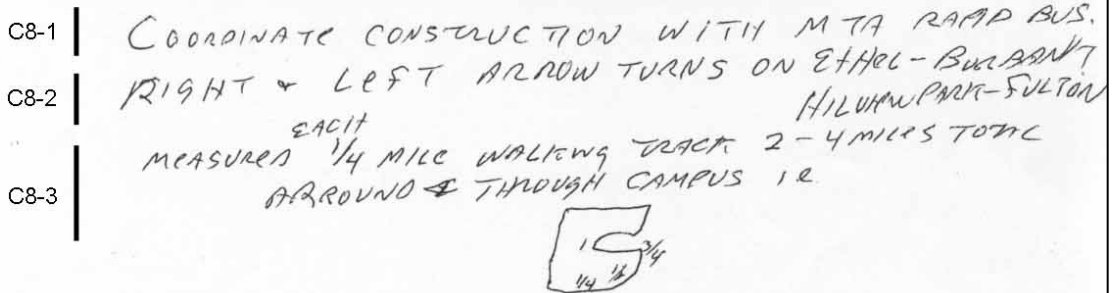 C8-1 COORDINATE CONSTRUCTION WITH MTA RAPID BUS.
C8-2 RIGHT & LEFT ARROW TURNS ON ETHEL - BURBANK &
PARK - FULTON
EACH
C8-3 MEASURED 1/4 MILE WALKING TRACK 2-4 MILES TOTAL
ARROUND & THROUGH CAMPUS ie
1 3/4
1/4 1/2